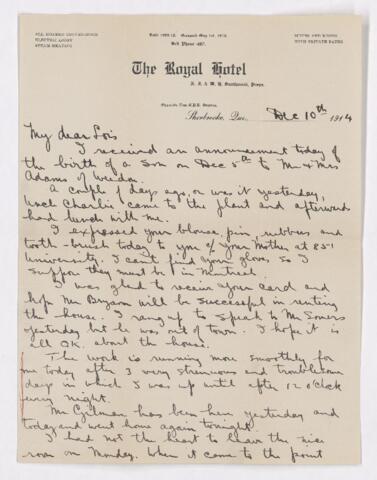 ALL MODERN CONVENIENCES
ELECTRIC LIGHT
STEAM HEATING
Bell Phone 487.
SUITES AND ROOMS
WITH PRIVATE BATHS
The Royal Hotel
Opposite Sherbrooke, Que., Dec 10th 1914
My dear Lois
I received an announcement today of
the birth of a Son on Dec 5th to Mr & Mrs
Adams of Weedon.
A couple of days ago, or was it yesterday,
Uncle Charlie came to the plant and afterwards
had lunch with me.
I expressed your blouse, pin, rubbers and
tooth-brush today to you c/o your Mother at 851
University. I can't find your gloves so I
suppose they must be in Montreal.
I was glad to receive your card and
hope Mr Bryson will be successful in renting
the house. I rang up to speak to Mr Somers
yesterday but he was out of town. I hope it is
all OK. about the house.
The work is running more smoothly for
me today after 3 very strenuous and troublesome
days in which I was up until after 12 o'clock
every night.
Mr Gilman has been here yesterday and
today and went home again tonight.
I had not the heart to leave the nice
room on Monday. When it came to the point